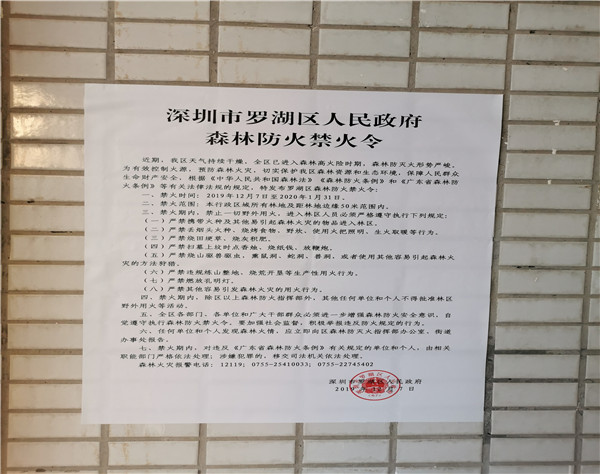 深圳市罗湖区人民政府
森林防火禁火令
近期，我区天气持续干燥，全区已进入森林高火险时期，森林防灭火形势严峻。
为有效控制火源，预防森林火灾，切实保护我区森林资源和生态环境，保障人民群
众生命财产安全，根据《中华人民共和国森林法》《森林防火条例》和《广东省森林防
火条例》等有关法律法规的规定，特发布罗湖区森林防火禁火令：
一、禁火时间：2019年12月7日至2020年1月31日。
二、禁火范围：本行政区域所有林地及距林地边缘50米范围内。
三、禁火期内，禁止一切野外用火，进入林区人员必须严格遵守执行下列规定：
（一）严禁携带火种及其他易引起森林火灾的物品进入林区。
（二）严禁丢烟火火种、烧烤食物、野炊、使用火把照明、生火取暖等行为。
（三）严禁烧田埂草、烧灰积肥。
（四）严禁扫墓上坟时点香烛、烧纸钱、放鞭炮。
（五）严禁烧山驱兽驱虫、熏鼠洞、蛇洞、兽洞，或者使用其他容易引起森林火
灾的方法狩猎。
（六）严禁违规炼山整地、烧荒开垦等生产性用火行为。
（七）严禁燃放孔明灯。
（八）严禁其他容易引发森林火灾的用火行为。
四、禁火期内，除区以上森林防火指挥部外，其他任何单位和个人不得批准林区
野外用火等活动。
五、全区各部门、各单位和广大干部群众必须进一步增强森林防火安全意识，自
觉遵守执行森林防火禁火令。要加强社会监督，积极举报违反防火规定的行为。
六、任何单位和个人发现森林火情，应立即向区森林防灭火指挥部办公室、街道
办事处报告。
七、禁火期内，对违反《广东省森林防火条例》有关规定的单位和个人，由相关
职能部门严格依法处理；涉嫌犯罪的，移交司法机关依法处理。
森林火灾报警电话：12119；0755-25410033；0755-22745402
深圳市罗湖区人民政府